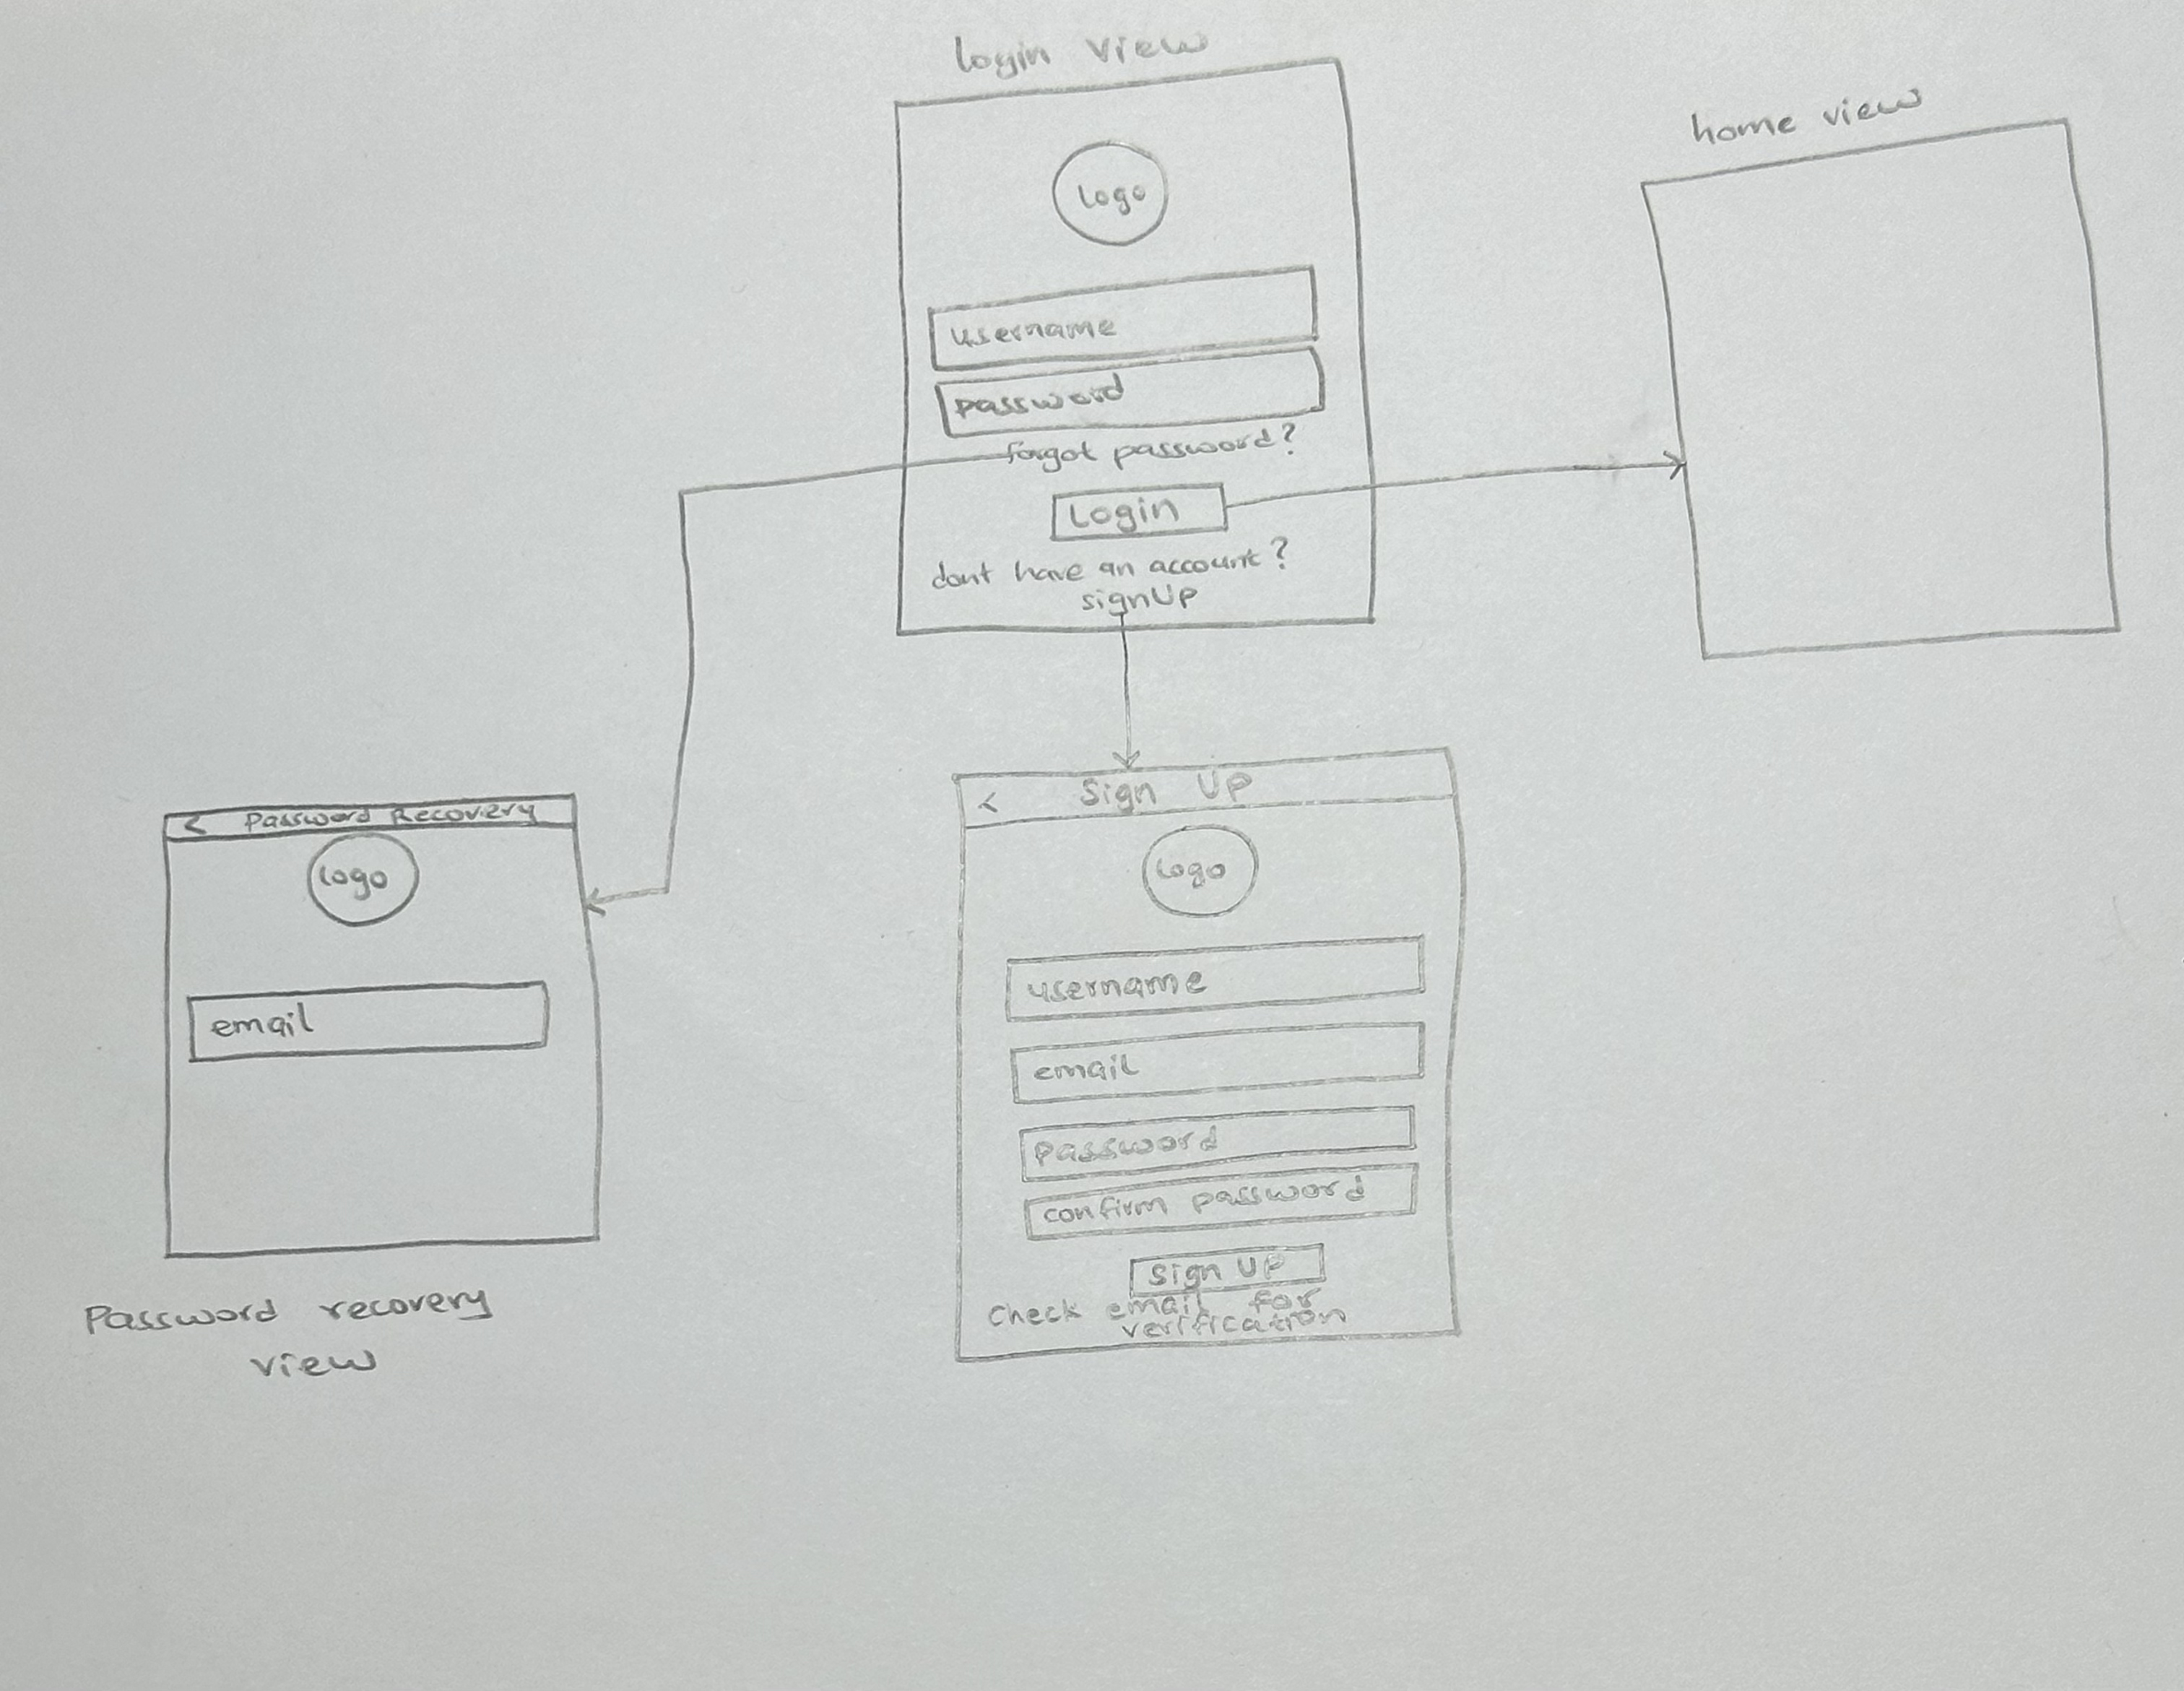 login view
logo
username
password
forgot password?
Login
dont have an account?
signUp
home view
< Password Recovery
logo
email
Password recovery
view
< Sign Up
logo
username
email
password
confirm password
Sign UP
Check email for
verification